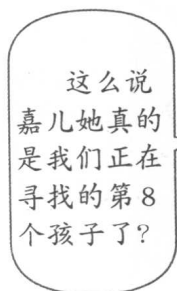 这么说
嘉儿她真的
是我们正在
寻找的第8
个孩子了？